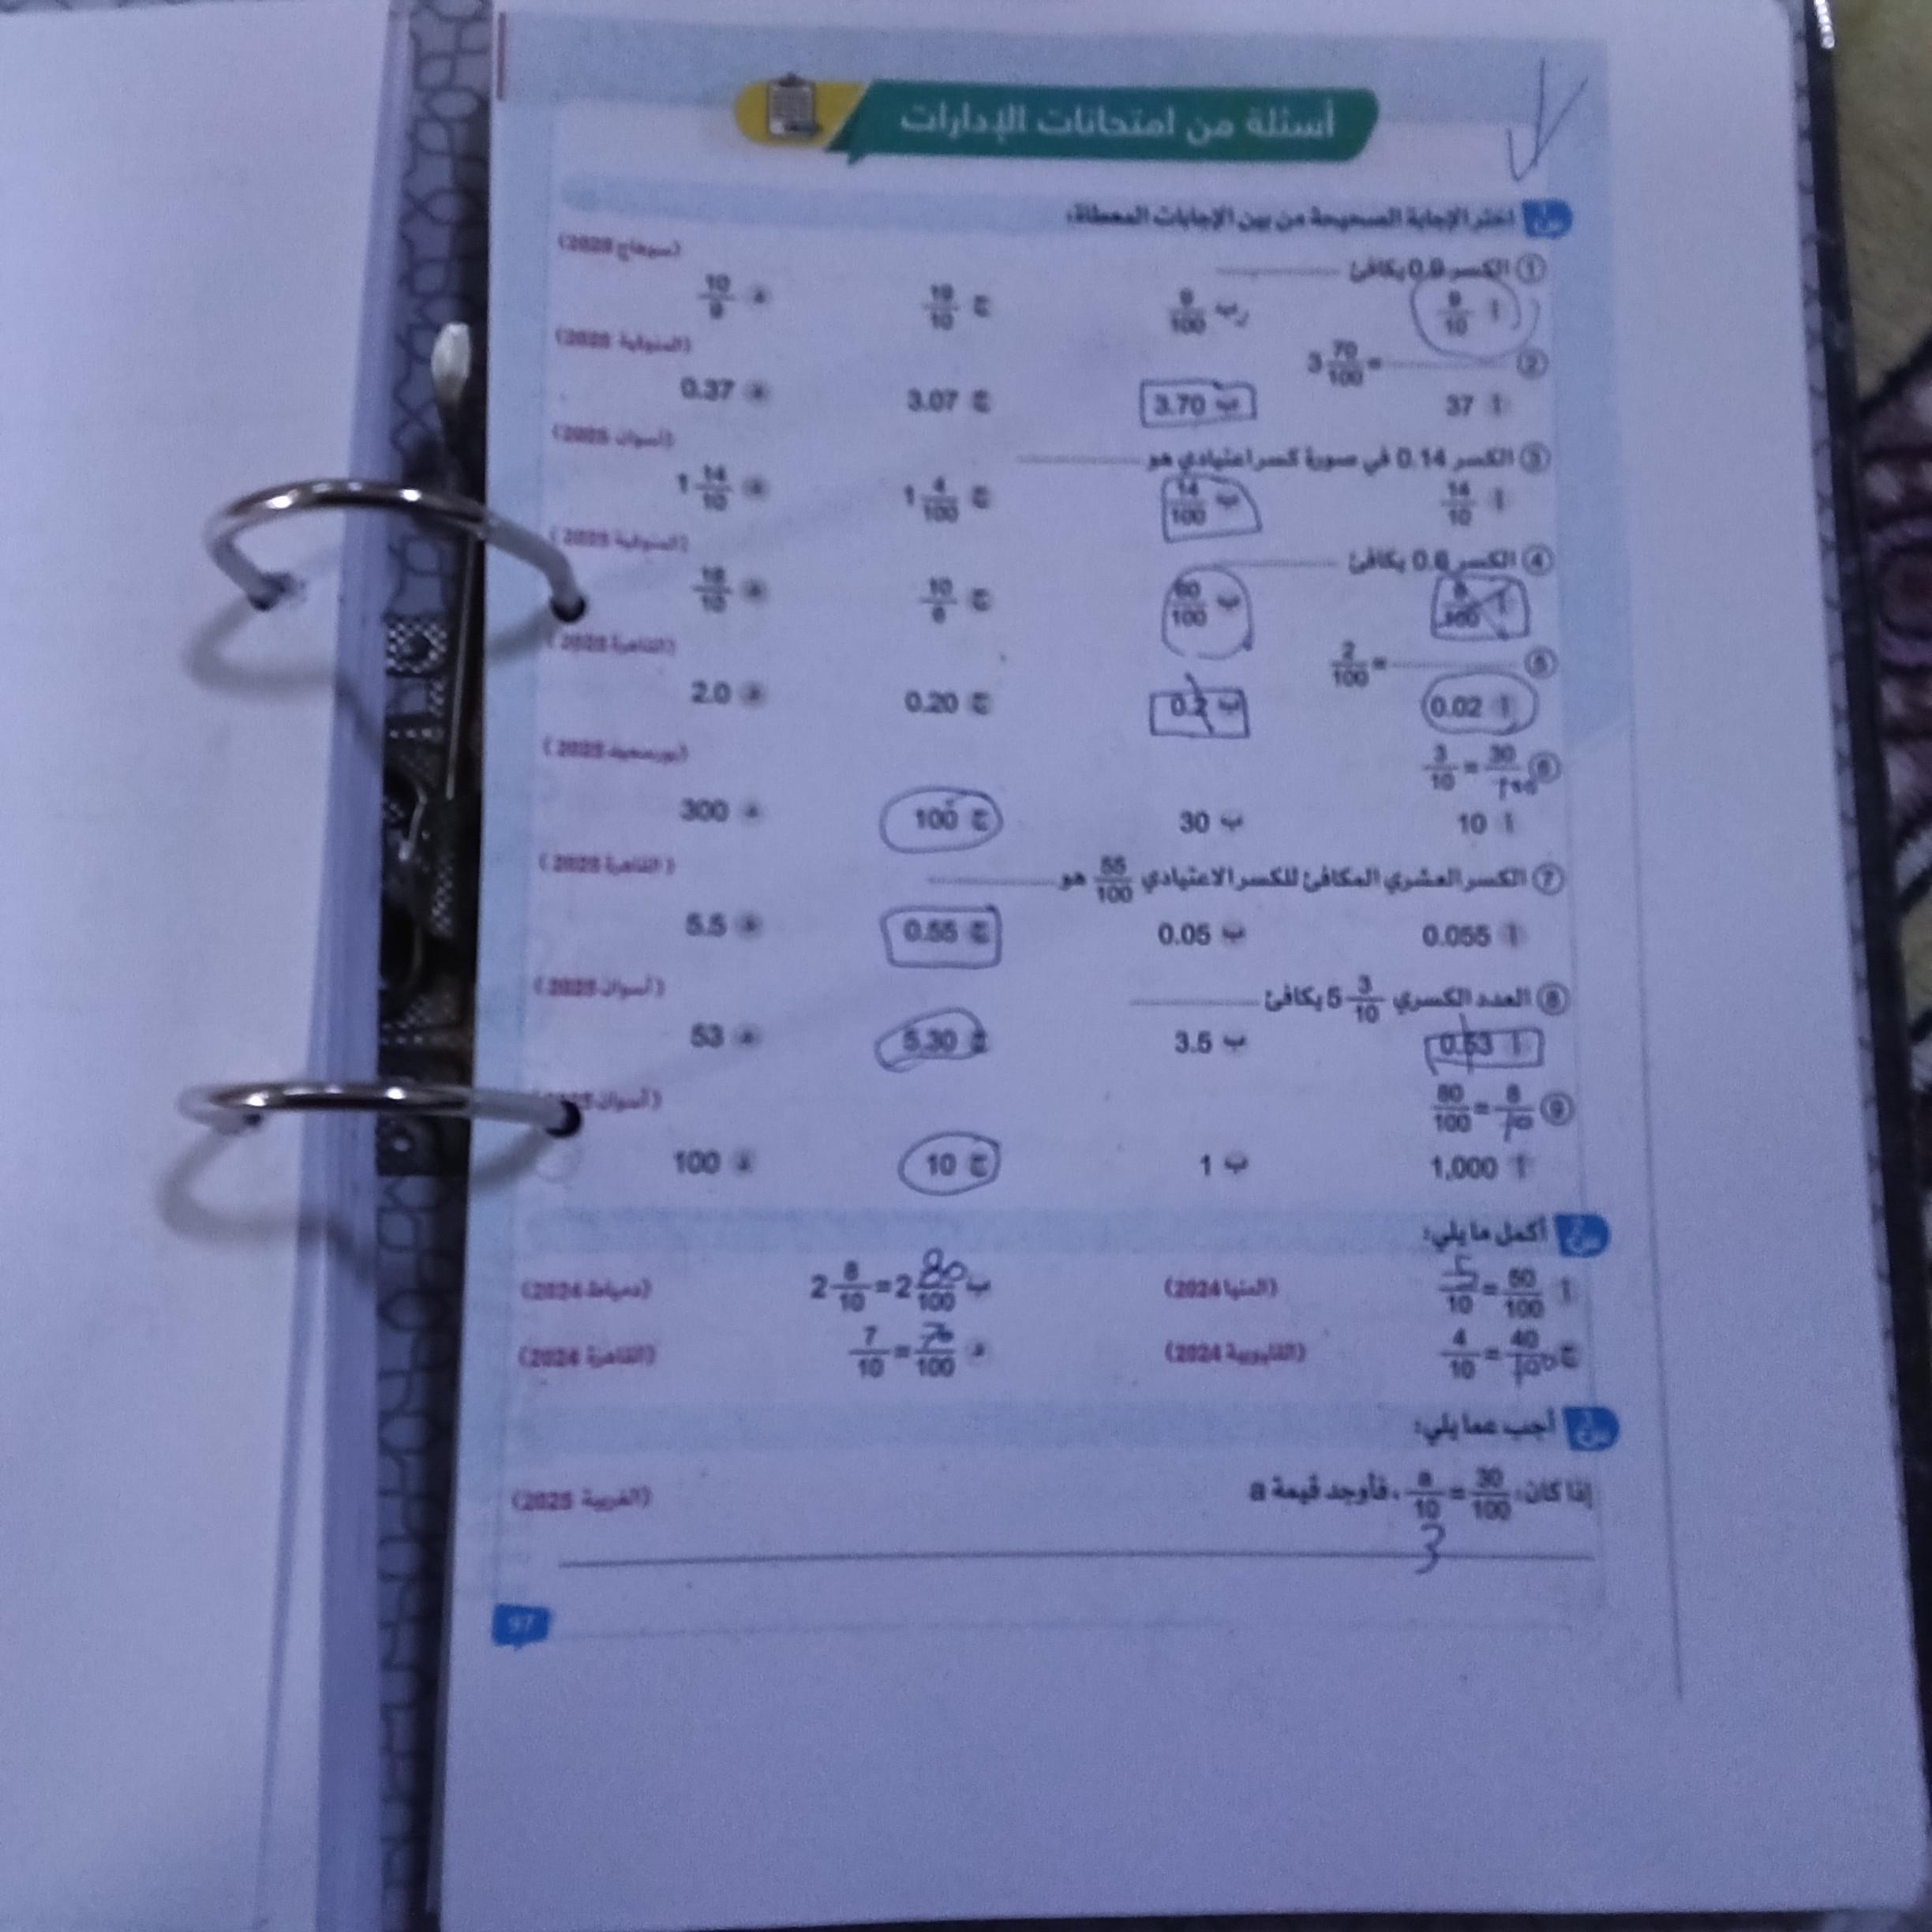 أسئلة من امتحانات الإدارات
اختر الإجابة الصحيحة من بين الإجابات المعطاة:
① الكسر 0.9 يكافئ ........ (سوهاج 2025)
أ 9/10 ب 9/100 ج 19/10 د 10/9
② ........ = 3 70/100 (المنوفية 2025)
أ 37 ب 3.70 ج 3.07 د 0.37
③ الكسر 0.14 في صورة كسر اعتيادي هو ........ (أسوان 2025)
أ 14/10 ب 14/100 ج 1 4/100 د 1 14/10
④ الكسر 0.6 يكافئ ........ (المنوفية 2025)
أ 6/100 ب 60/100 ج 10/6 د 16/10
⑤ ........ = 2/100 (القاهرة 2025)
أ 0.02 ب 0.2 ج 0.20 د 2.0
⑥ 3/10 = 30/100 (بورسعيد 2025)
أ 10 ب 30 ج 100 د 300
⑦ الكسر العشري المكافئ للكسر الاعتيادي 55/100 هو ........ (القاهرة 2025)
أ 0.055 ب 0.05 ج 0.55 د 5.5
⑧ العدد الكسري 5 3/10 يكافئ ........ (أسوان 2025)
أ 0.53 ب 3.5 ج 5.30 د 53
⑨ 80/100 = 8/10 (أسوان 2025)
أ 1,000 ب 1 ج 10 د 100
أكمل ما يلي:
أ 5/10 = 50/100 (المنيا 2024) ب 2 8/10 = 2 80/100 (دمياط 2024)
ج 4/10 = 40/100 (القليوبية 2024) د 7/10 = 70/100 (القاهرة 2024)
أجب عما يلي:
إذا كان: a/10 = 30/100 ، فأوجد قيمة a (الغربية 2025)
3
97